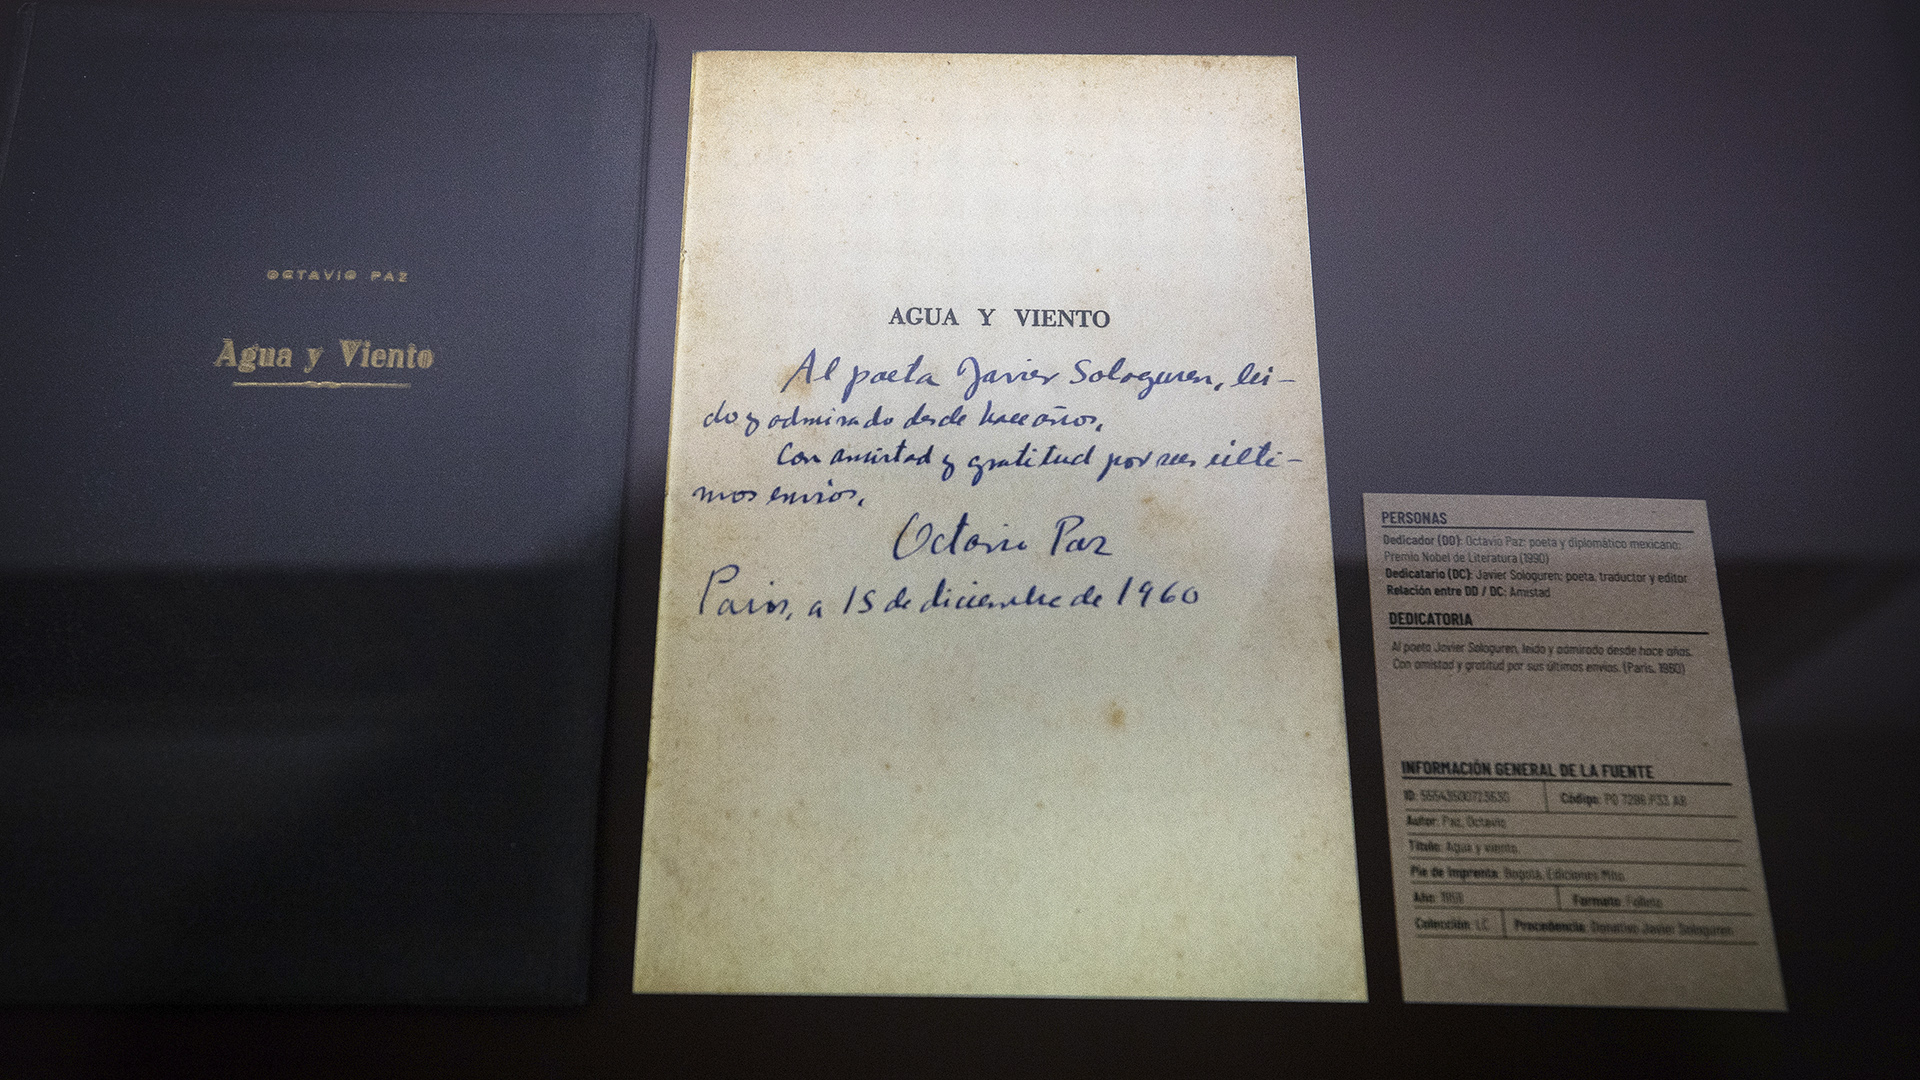 OCTAVIO PAZ
Agua y Viento
AGUA Y VIENTO
Al poeta Javier Sologuren, leí-
do y admirado desde hace años.
Con amistad y gratitud por sus últi-
mos envíos,
Octavio Paz
París, a 15 de diciembre de 1960
PERSONAS
Dedicador (DD): Octavio Paz: poeta y diplomático mexicano;
Premio Nobel de Literatura (1990)
Dedicatario (DC): Javier Sologuren: poeta, traductor y editor
Relación entre DD / DC: Amistad
DEDICATORIA
Al poeta Javier Sologuren, leído y admirado desde hace años.
Con amistad y gratitud por sus últimos envíos. (París, 1960)
INFORMACIÓN GENERAL DE LA FUENTE
ID: Código: PQ 7298 P33 A8
Autor: Paz, Octavio
Título: Agua y viento.
Pie de Imprenta: Bogotá, Ediciones Mito.
Año: 1959 Formato: Folleto
Colección: LC Procedencia: Donativo Javier Sologuren